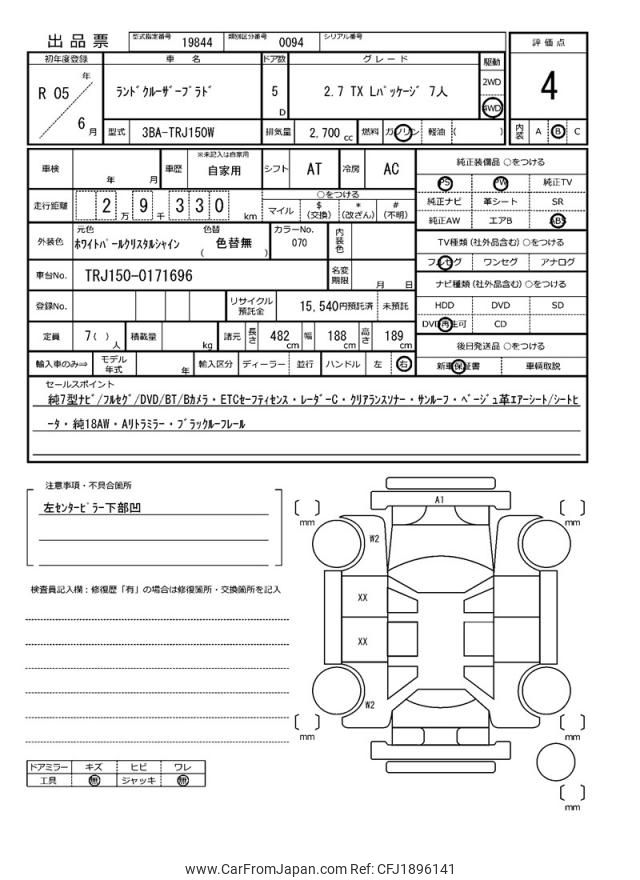 出品票
型式指定番号 19844 類別区分番号 0094 シリアル番号
初年度登録 車名 ドア数 グレード 駆動 評価点
R 05 年 6 月
ﾗﾝﾄﾞｸﾙｰｻﾞｰﾌﾟﾗﾄﾞ 5 D 2.7 TX Lﾊﾟｯｹｰｼﾞ 7人
2WD
4WD
4
型式 3BA-TRJ150W 排気量 2,700 cc 燃料 ガソリン 軽油 ( )
内装 A B C
車検 年 月 車歴 ※未記入は自家用 自家用 シフト AT 冷房 AC
純正装備品 ○をつける
PS PW 純正TV
純正ナビ 革シート SR
純正AW エアB ABS
走行距離 2 万 9 千 3 3 0 km
○をつける
マイル $ (交換) * (改ざん) # (不明)
外装色 元色 ﾎﾜｲﾄﾊﾟｰﾙｸﾘｽﾀﾙｼｬｲﾝ 色替 ( 色替無 ) カラーNo. 070 内装色
TV種類 (社外品含む) ○をつける
フルセグ ワンセグ アナログ
車台No. TRJ150-0171696 名変期限 月 日
ナビ種類 (社外品含む) ○をつける
HDD DVD SD
DVD再生可 CD
登録No. リサイクル預託金 15,540円預託済 未預託
定員 7( ) 人 積載量 kg 諸元 長さ 482 cm 幅 188 cm 高さ 189 cm
後日発送品 ○をつける
新車保証書 車輌取説
輸入車のみ⇒ モデル年式 年 輸入区分 ディーラー 並行 ハンドル 左 右
セールスポイント
純7型ﾅﾋﾞ/ﾌﾙｾｸﾞ/DVD/BT/Bｶﾒﾗ・ETCｾｰﾌﾃｨｾﾝｽ・ﾚｰﾀﾞｰC・ｸﾘｱﾗﾝｽｿﾅｰ・ｻﾝﾙｰﾌ・ﾍﾞｰｼﾞｭ革ｴｱｰｼｰﾄ/ｼｰﾄﾋ
ｰﾀ・純18AW・Aﾘﾄﾗﾐﾗｰ・ﾌﾞﾗｯｸﾙｰﾌﾚｰﾙ
注意事項・不具合箇所
左ｾﾝﾀｰﾋﾟﾗｰ下部凹
検査員記入欄：修復歴「有」の場合は修復箇所・交換箇所を記入
A1
mm
mm
W2
XX
XX
W2
mm
mm
mm
ドアミラー キズ ヒビ ワレ
工具 無 ジャッキ 無
www.CarFromJapan.com Ref: CFJ1896141